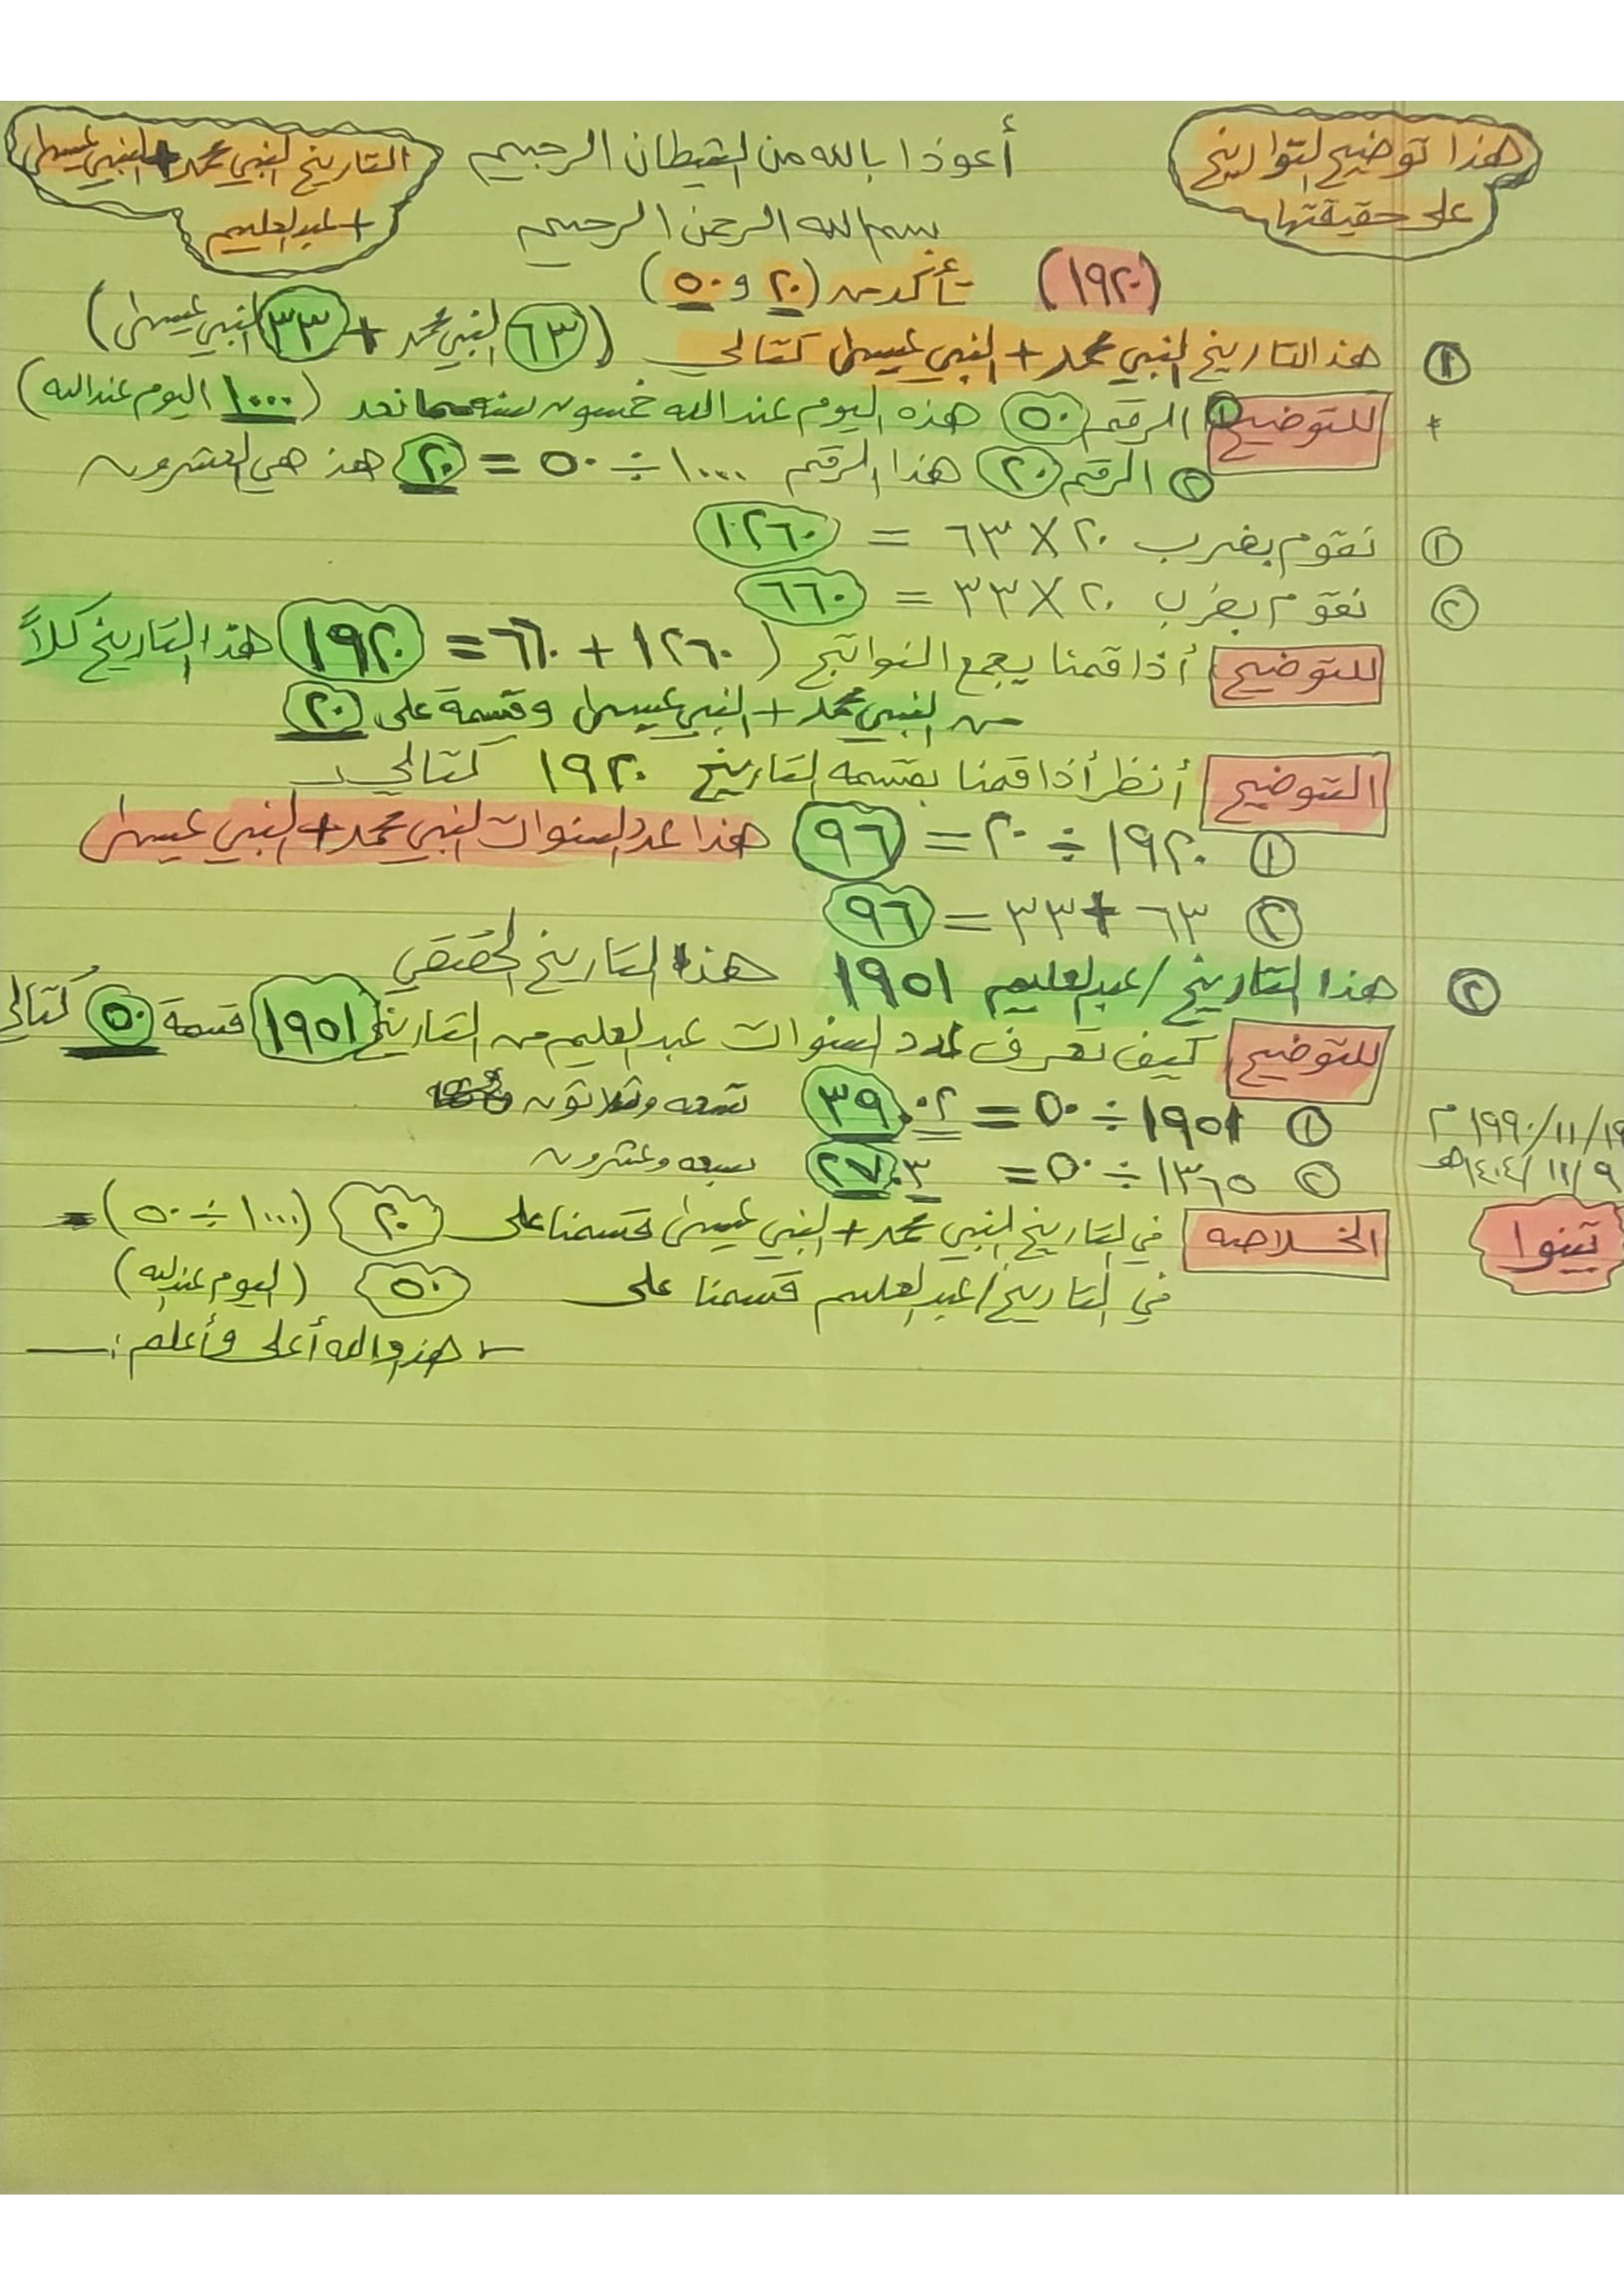 هذا توضيح لتواريخ
على حقيقتها
أعوذا بالله من الشيطان الرجيم
بسم الله الرحمن الرحيم
التاريخ النبي محمد + النبي عيسى
+ عبدالعليم
(١٩٢٠) تأكد من (٢٠ و ٥٠)
١ هذا التاريخ النبي محمد + النبي عيسى كتالي (٦٣ النبي محمد + ٣٣ النبي عيسى)
* للتوضيح ١ الرقم ٥٠ هذه اليوم عند الله خمسون سنه مما نعد (١٠٠٠ اليوم عند الله)
٢ الرقم ٢٠ هذا الرقم ١٠٠٠ ÷ ٥٠ = ٢٠ هذ هي العشرون
١ نقوم بضرب ٢٠ × ٦٣ = ١٢٦٠
٢ نقوم بضرب ٢٠ × ٣٣ = ٦٦٠
للتوضيح أذا قمنا بجمع النواتج (١٢٦٠ + ٦٦٠ = ١٩٢٠ هذ التاريخ كلاً
من النبي محمد + النبي عيسى وقسمة على ٢٠
التوضيح أنظر أذا قمنا بقسمه التاريخ ١٩٢٠ كتالي
١ ١٩٢٠ ÷ ٢٠ = ٩٦ هذا عدد السنوات النبي محمد + النبي عيسى
٢ ٦٣ + ٣٣ = ٩٦
٢ هذا التاريخ / عبدالعليم ١٩٥١ هذا التاريخ الحقيقي
للتوضيح كيف تعرف عدد السنوات عبدالعليم من التاريخ ١٩٥١ قسمة ٥٠ كتالي
١ ١٩٥١ ÷ ٥٠ = ٣٩.٠٢ تسعه وثلاثون
٢ ١٣٦٥ ÷ ٥٠ = ٢٧.٣ سبعه وعشرون
١٩٩٠/١١/١٩ م
١٤٠٤/١١/٩ هـ
تبينوا
الخلاصه في التاريخ النبي محمد + النبي عيسى قسمنا على ٢٠ (١٠٠٠ ÷ ٥٠) =
في التاريخ / عبدالعليم قسمنا على ٥٠ (اليوم عند الله)
- هذ والله أعلى وأعلم :ــ